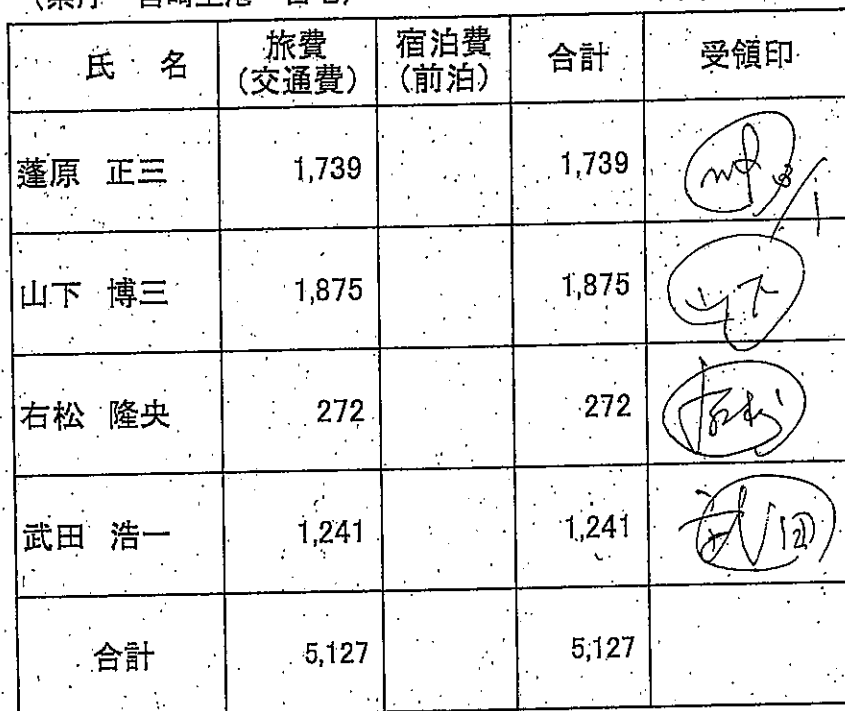 氏 名 旅費(交通費) 宿泊費(前泊) 合計 受領印
蓬原 正三 1,739 1,739
山下 博三 1,875 1,875 山下
右松 隆央 272 272 右松
武田 浩一 1,241 1,241 武田
合計 5,127 5,127